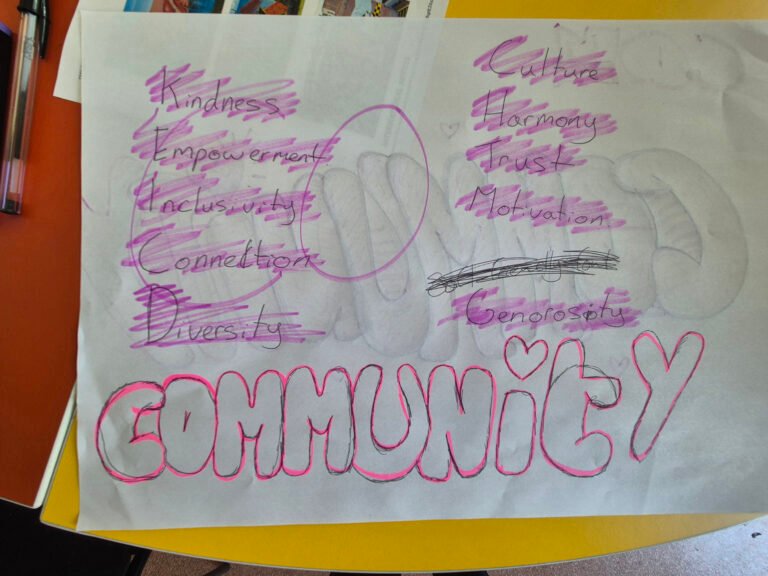 Kindness
Empowerment
Inclusivity
Connection
Diversity
Culture
Harmony
Trust
Motivation
Generosity
COMMUNITY